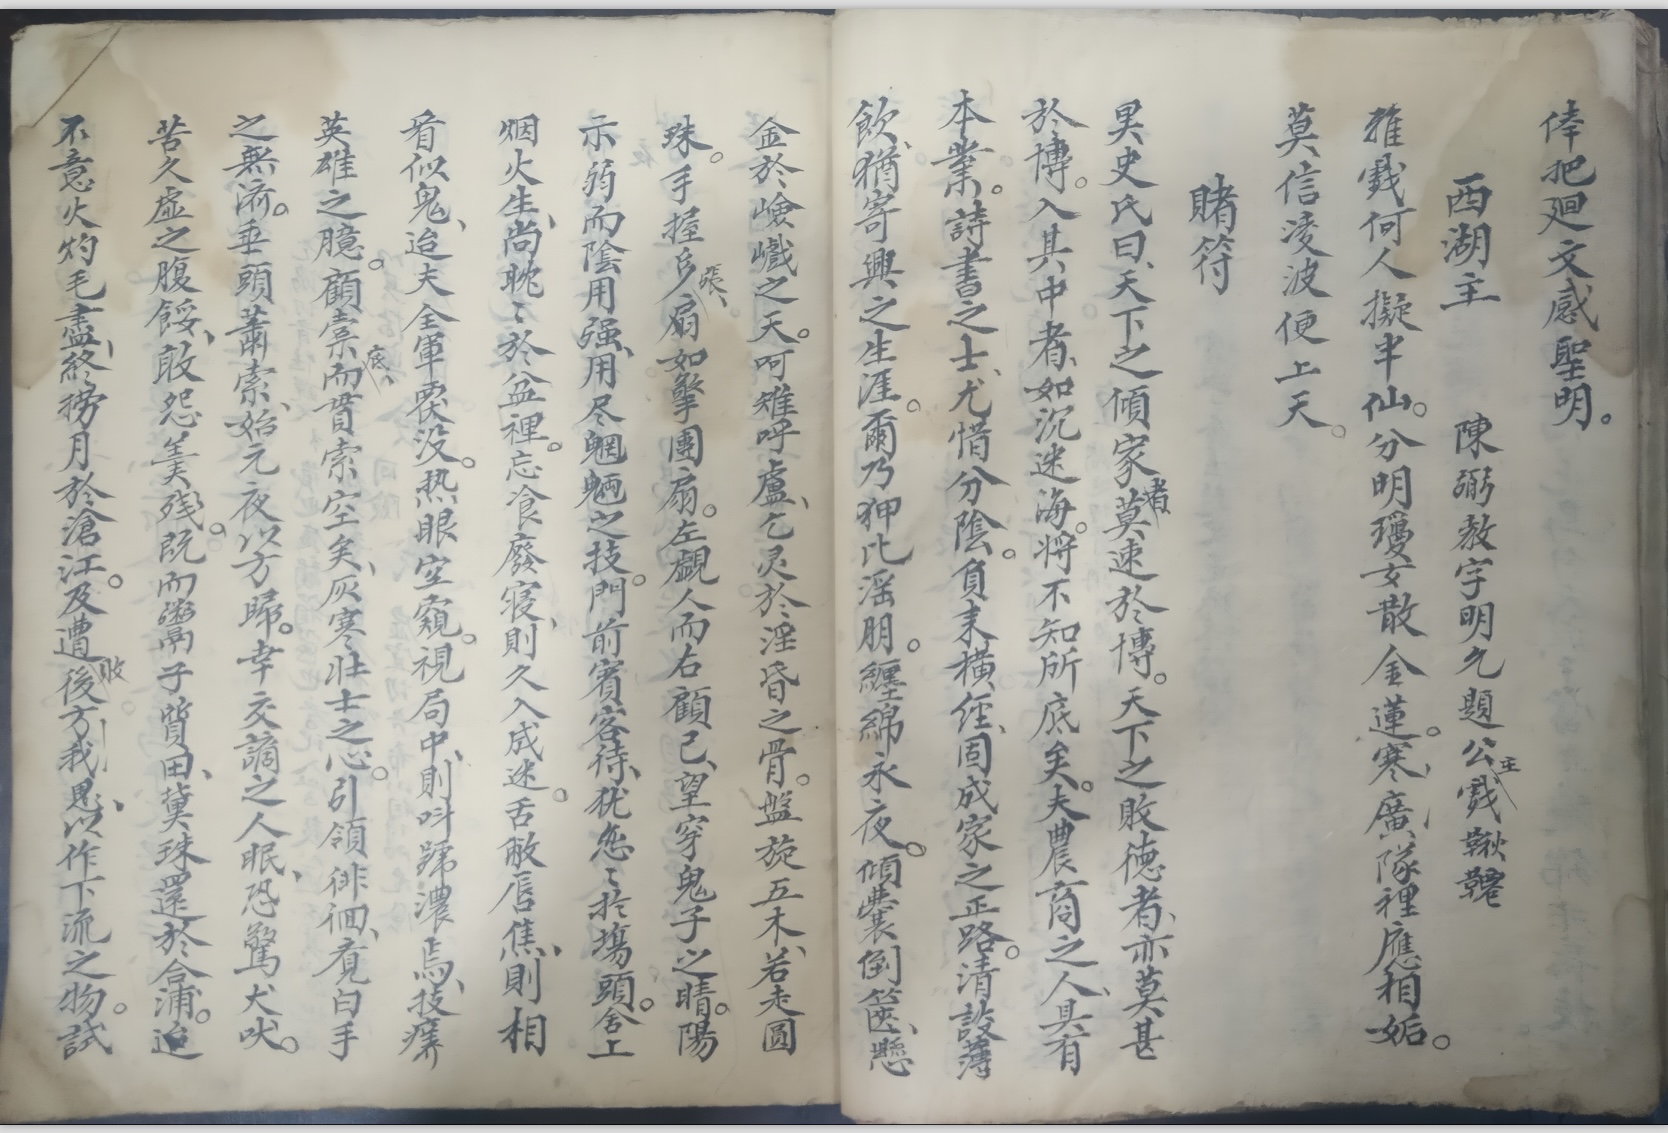 俸把廻文感聖明。
西湖主　陳弼教字明允題公主戲鞦韆
推戲何人擬半仙。分明瓊女散金蓮。寒廣隊裡應相妬。
莫信淩波便上天。
賭符
異史氏曰、天下之傾家者莫速於博。天下之敗德者、亦莫甚
於博。入其中者、如沉迷海。將不知所底矣。夫農商之人、具有
本業。詩書之士、尤惜分陰。負耒橫經、固成家之正路。清談薄
飲、猶寄興之生涯。爾乃狎比淫朋。纏綿永夜。傾囊倒篋、懸
金於嶮巇之天。呵雉呼盧、乞灵於淫昏之骨。盤旋五木、若走圓
珠。手握多張、扇如擎團扇。左覷人而右顧己、望穿鬼子之睛。陽
示弱而陰用强、用尽魍魎之技。門前賓客待、犹恋〻於塲頭。舍上
烟火生、尚眈〻於盆裡。忘飡廢寝、則久入成迷。舌敝唇焦、則相
看似鬼、迨夫全軍覄没。热眼空窺。視局中、則呌號濃焉、技癢
英雄之臆。顧橐底、而貫索空矣、灰寒壮士之心。引領徘徊、覔白手
之無济。垂頭蕭索、始元夜以方歸。幸交謫之人眠、恐驚犬吠。
苦久虛之腹餒、敢怨羹残。既而鬻子質田、冀珠還於合浦。迨
不意火灼毛盡、終撈月於滄江。及遭敗後方我思、以作下流之物。試